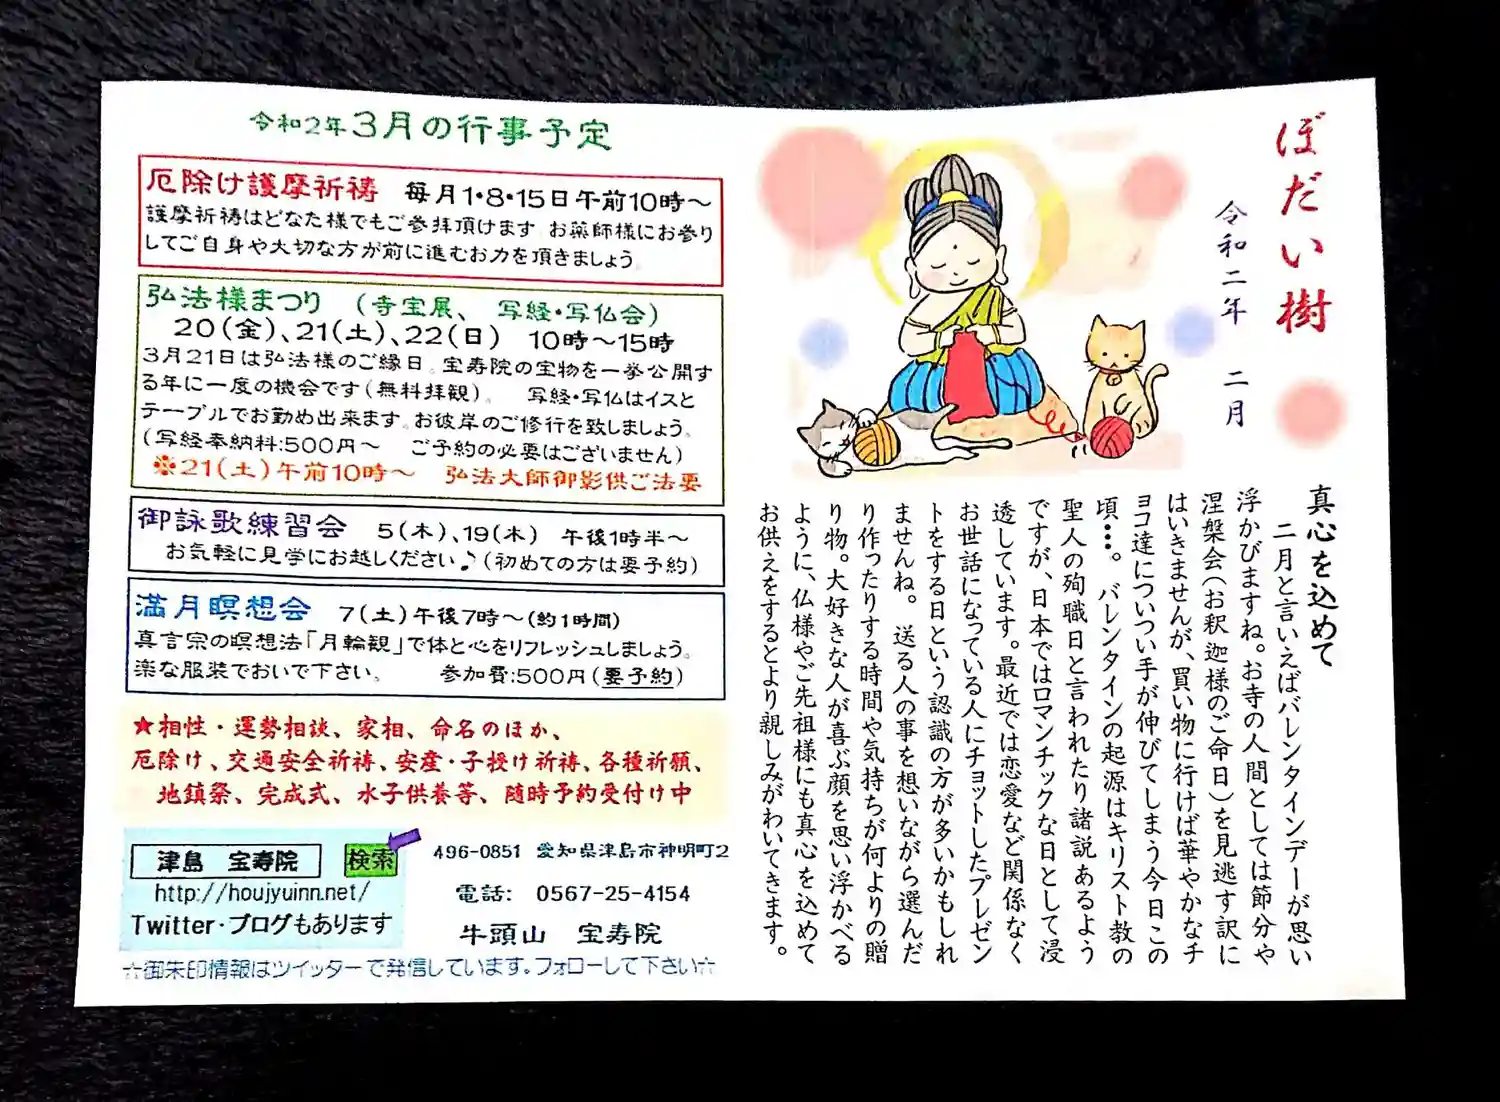 ぼだい樹
令和二年 二月
真心を込めて
二月と言いえばバレンタインデーが思い
浮かびますね。お寺の人間としては節分や
涅槃会(お釈迦様のご命日)を見逃す訳に
はいきませんが、買い物に行けば華やかなチ
ョコ達についつい手が伸びてしまう今日この
頃•••。 バレンタインの起源はキリスト教の
聖人の殉職日と言われたり諸説あるよう
ですが、日本ではロマンチックな日として浸
透しています。最近では恋愛など関係なく
お世話になっている人にチョットしたプレゼン
トをする日という認識の方が多いかもしれ
ませんね。 送る人の事を想いながら選んだ
り作ったりする時間や気持ちが何よりの贈
り物。大好きな人が喜ぶ顔を思い浮かべる
ように、仏様やご先祖様にも真心を込めて
お供えをするとより親しみがわいてきます。
令和2年3月の行事予定
厄除け護摩祈祷 毎月1•8•15日午前10時～
護摩祈祷はどなた様でもご参拝頂けます。お薬師様にお参り
してご自身や大切な方が前に進むお力を頂きましょう。
弘法様まつり (寺宝展、 写経•写仏会)
20(金)、21(土)、22(日) 10時～15時
3月21日は弘法様のご縁日。宝寿院の宝物を一挙公開す
る年に一度の機会です(無料拝観)。 写経•写仏はイスと
テーブルでお勤め出来ます。お彼岸のご修行を致しましょう。
(写経奉納料:500円～ ご予約の必要はございません)
※21(土)午前10時～ 弘法大師御影供ご法要
御詠歌練習会 5(木)、19(木) 午後1時半～
お気軽に見学にお越しください♪(初めての方は要予約)
満月瞑想会 7(土)午後7時～(約1時間)
真言宗の瞑想法「月輪観」で体と心をリフレッシュしましょう。
楽な服装でおいで下さい。 参加費:500円(要予約)
★相性・運勢相談、家相、命名のほか、
厄除け、交通安全祈祷、安産・子授け祈祷、各種祈願、
地鎮祭、完成式、水子供養等、随時予約受付け中
津島 宝寿院 検索
http://houjyuinn.net/
Twitter・ブログもあります
496-0851 愛知県津島市神明町2
電話: 0567-25-4154
牛頭山 宝寿院
☆御朱印情報はツイッターで発信しています。フォローして下さい☆